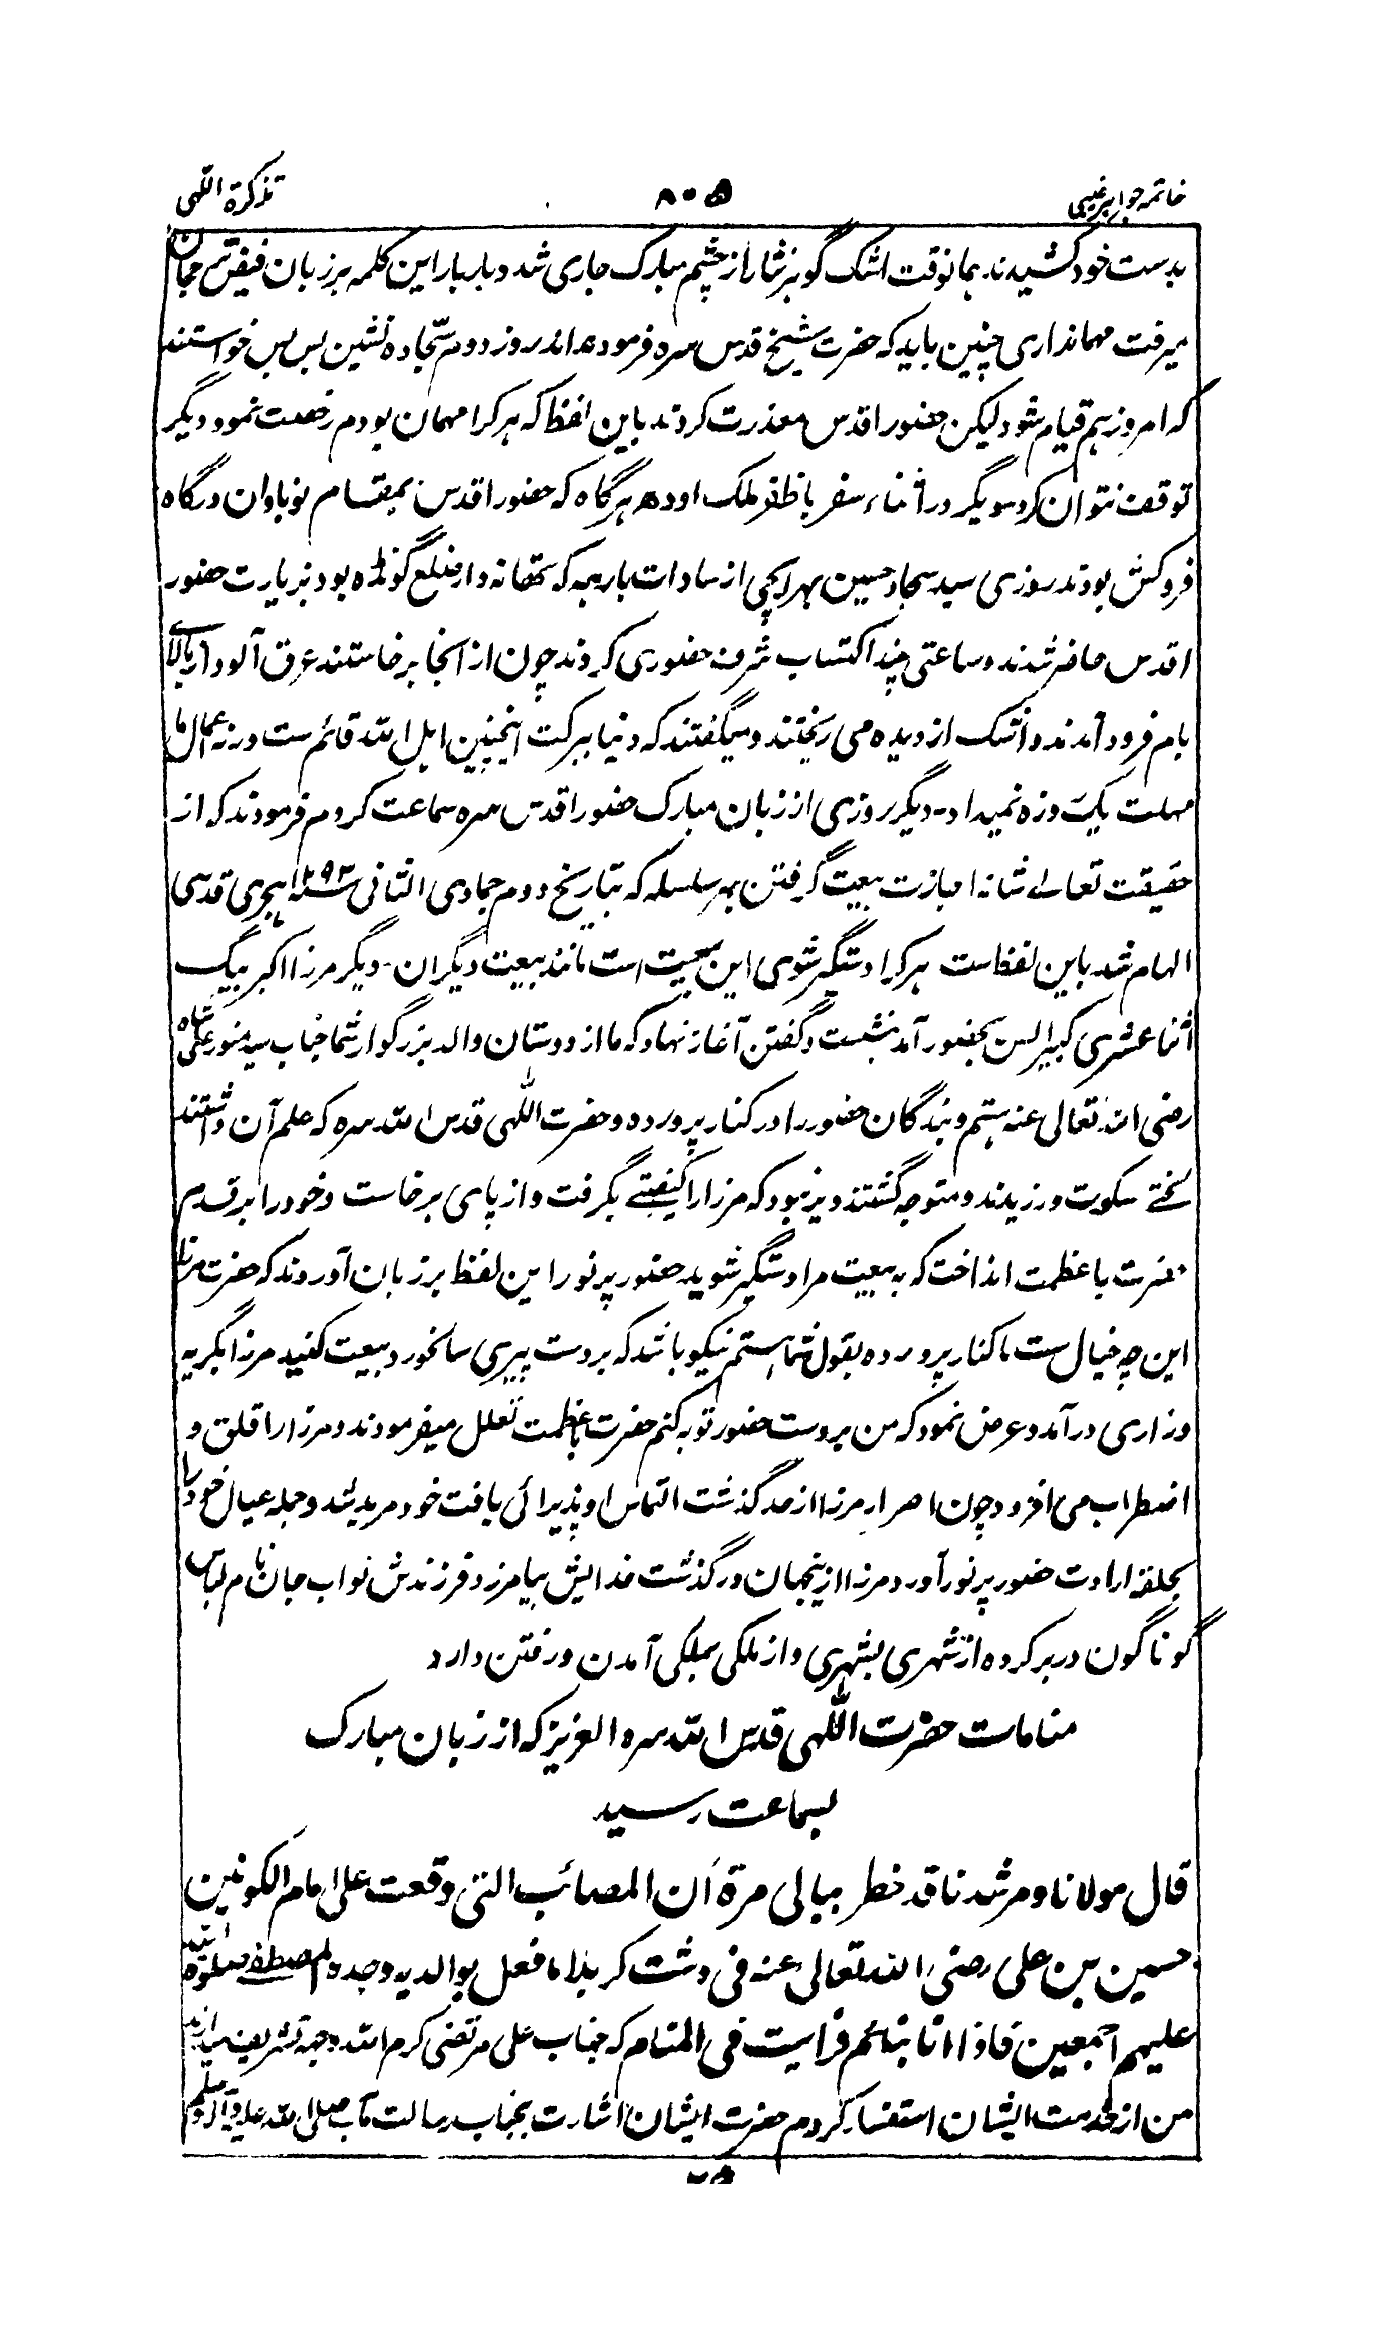 خاتمه جواهر غیبی
۸۰۵
تذکرة اللّهی
بدست خود کشیدند همانوقت اشک گوهر نثار از چشم مبارک جاری شد و بار بار این کلمه بر زبان فیض ترجمان
میرفت مهمانداری چنین باید که حضرت شیخ قدس سره فرموده اند روز دوم سجاده نشین بس بس خواستند
که امروز هم قیام شود لیکن حضور اقدس معذرت کردند باین لفظ که هر کرا مهمان بودم رخصت نمود دیگر
توقف نتوان کرد سویگر در اثناء سفر با ظفر ملک اودهه هر گاه که حضور اقدس بمقام نوباوان درگاه
فروکش بودند روزی سید سجاد حسین بهرایچی از سادات بارہہ که تهانه دار ضلع گونڈه بود بزیارت حضور
اقدس حاضر شدند و ساعتی چند اکتساب شرف حضوری کردند چون از انجا برخاستند عرق آلود از بالای
بام فرود آمدند و اشک از دیده می ریختند و میگفتند که دنیا ببرکت اینچنین اهل الله قائم ست ورنه اعمال ما
مهلت یک روزه نمیداد - دیگر روزی از زبان مبارک حضور اقدس سره سماعت کردم فرمودند که از
حقیقت تعالی شانه اجازت بیعت گرفتن بهر سلسله که بتاریخ دوم جمادی الثانی سنه ۱۲۹۳ هجری قدسی
الهام شد باین لفظ است هر کرا دستگیر شوی این بیعت است مانند بیعت دیگران - دیگر مرزا اکبر بیگ
اثنا عشری کبیر السن بحضور آمد بنشست و گفتن آغاز نهاد که ما از دوستان والد بزرگوار شما جناب سید منور علی شاه
رضی الله تعالی عنه هستم و بندگان حضور را در کنار پرورده و حضرت اللّهی قدس الله سره که علم آن داشتند
لختے سکوت ورزیدند و متوجه گشتند دیز نبود که مرزا را کیفیتے بگرفت و از پای برخاست و خود را بر قدم
حضرت با عظمت انداخت که به بیعت مرا دستگیر شوید حضور پرنور این لفظ بر زبان آوردند که حضرت مرزا
این چه خیال ست ما کنار پرورده بقول شما هستم نیکو باشد که بر دست پیری سالخورد بیعت کنید مرزا بگریه
و زاری در آمد و عرض نمود که من بر دست حضور توبه کنم حضرت با عظمت تعلل میفرمودند و مرزا را قلق و
اضطراب می افزود چون اصرار مرزا از حد گذشت التماس او پذیرائی یافت خود مرید شد و جمله عیال خود را
بحلقه ارادت حضور پرنور آورد و مرزا ازینجهان درگذشت خدایش بیامرزد و فرزندش نواب جان نام لباس
گوناگون در بر کرده از شهری بشهری و از ملکی بملکی آمدن و رفتن دارد
منامات حضرت اللّهی قدس الله سره العزیز که از زبان مبارک
بسماعت رسید
قال مولانا و مرشدنا قد خطر ببالی مرة ان المصائب التی وقعت علی امام الکونین
حسین بن علی رضی الله تعالی عنه فی دشت کربلا ما فعل بوالدیه وجده المصطفی صلوة الله
علیهم اجمعین فاذا انا بنائم فرایت فی المنام که جناب علی مرتضی کرم الله وجهه تشریف میدارند
من از خدمت ایشان استفسار کردم حضرت ایشان اشارت بجناب رسالت مآب صلی الله علیه وآله وسلم